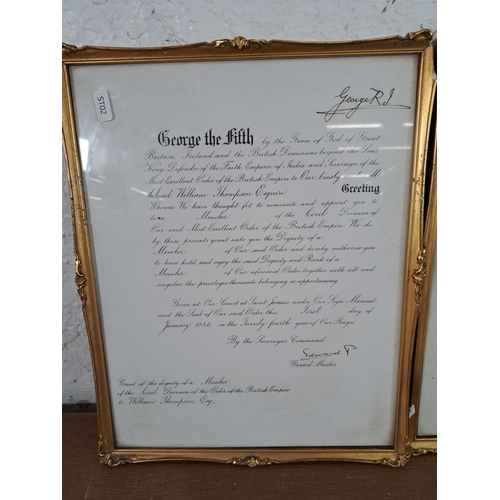 ST02
George R.I
George the Fifth by the Grace of God of Great
Britain, Ireland and the British Dominions beyond the Seas
King, Defender of the Faith Emperor of India and Sovereign of the
Most Excellent Order of the British Empire to Our trusty and well
beloved William Thompson Esquire Greeting
Whereas We have thought fit to nominate and appoint you to
be a Member of the Civil Division of
Our said Most Excellent Order of the British Empire We do
by these presents grant unto you the Dignity of a
Member of Our said Order and hereby authorise you
to have hold and enjoy the said Dignity and Rank of a
Member of Our aforesaid Order together with all and
singular the privileges thereunto belonging or appertaining
Given at Our Court at Saint James's under Our Sign Manual
and the Seal of Our said Order this First day of
January 1934 in the Twenty fourth year of Our Reign
By the Sovereign's Command
Edward P
Grand Master
Grant of the dignity of a Member
of the Civil Division of the Order of the British Empire
to William Thompson, Esq.